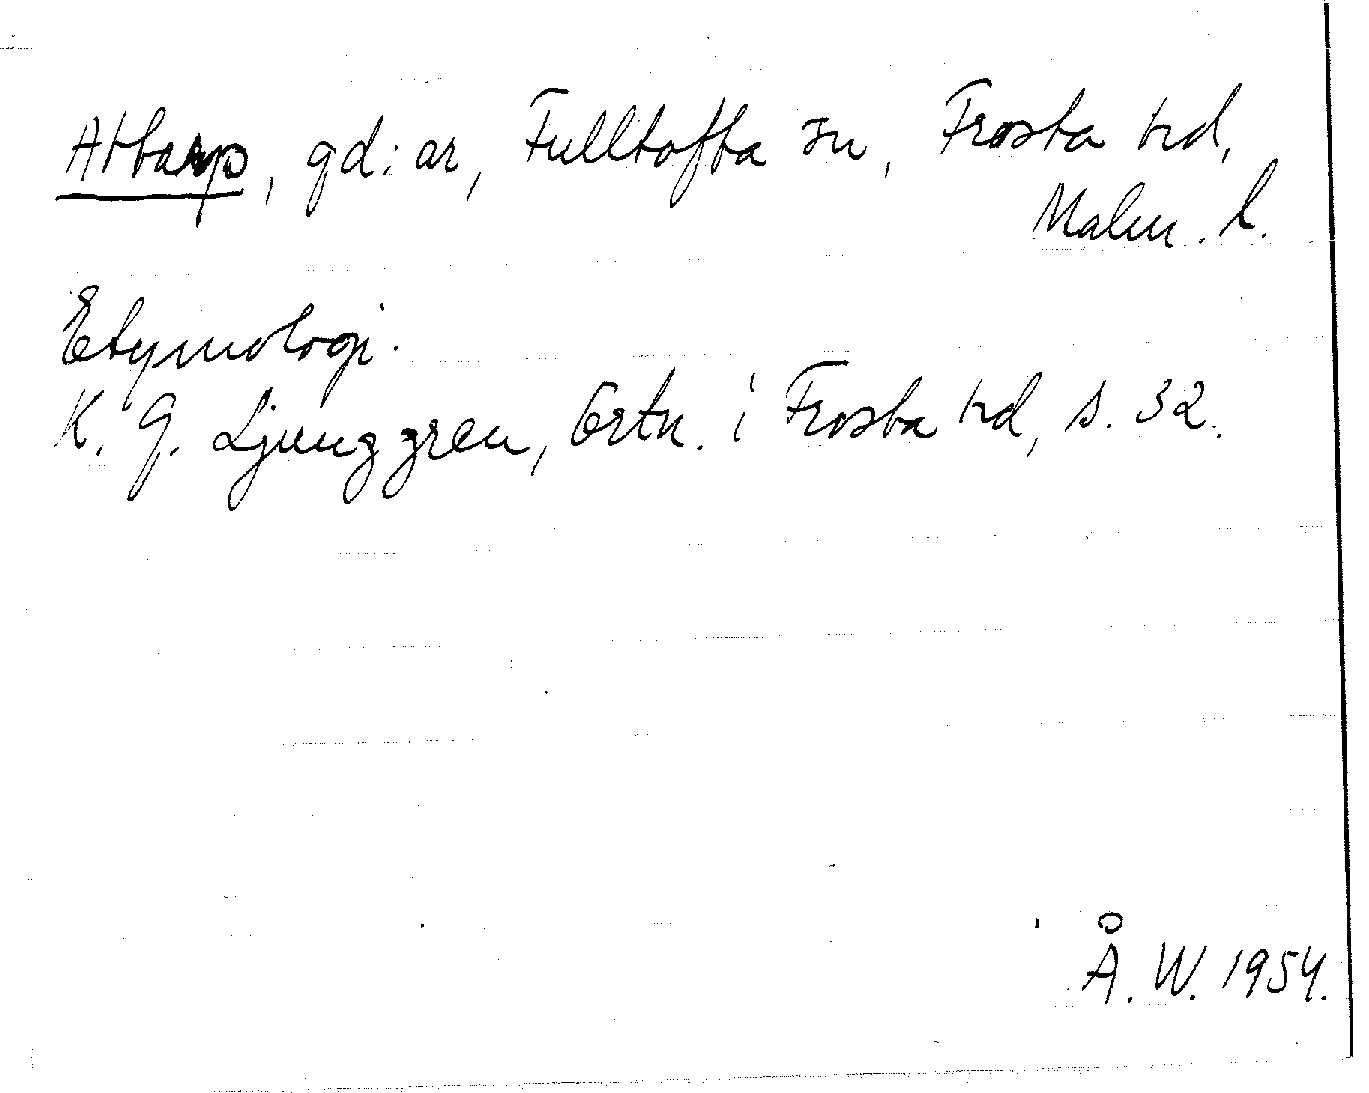 Attarp, gd:ar, Fulltofta sn, Frosta hd,
Malm. l.
Etymologi.
K. G. Ljunggren, Ortn. i Frosta hd, s. 32.
Å. W. 1954.